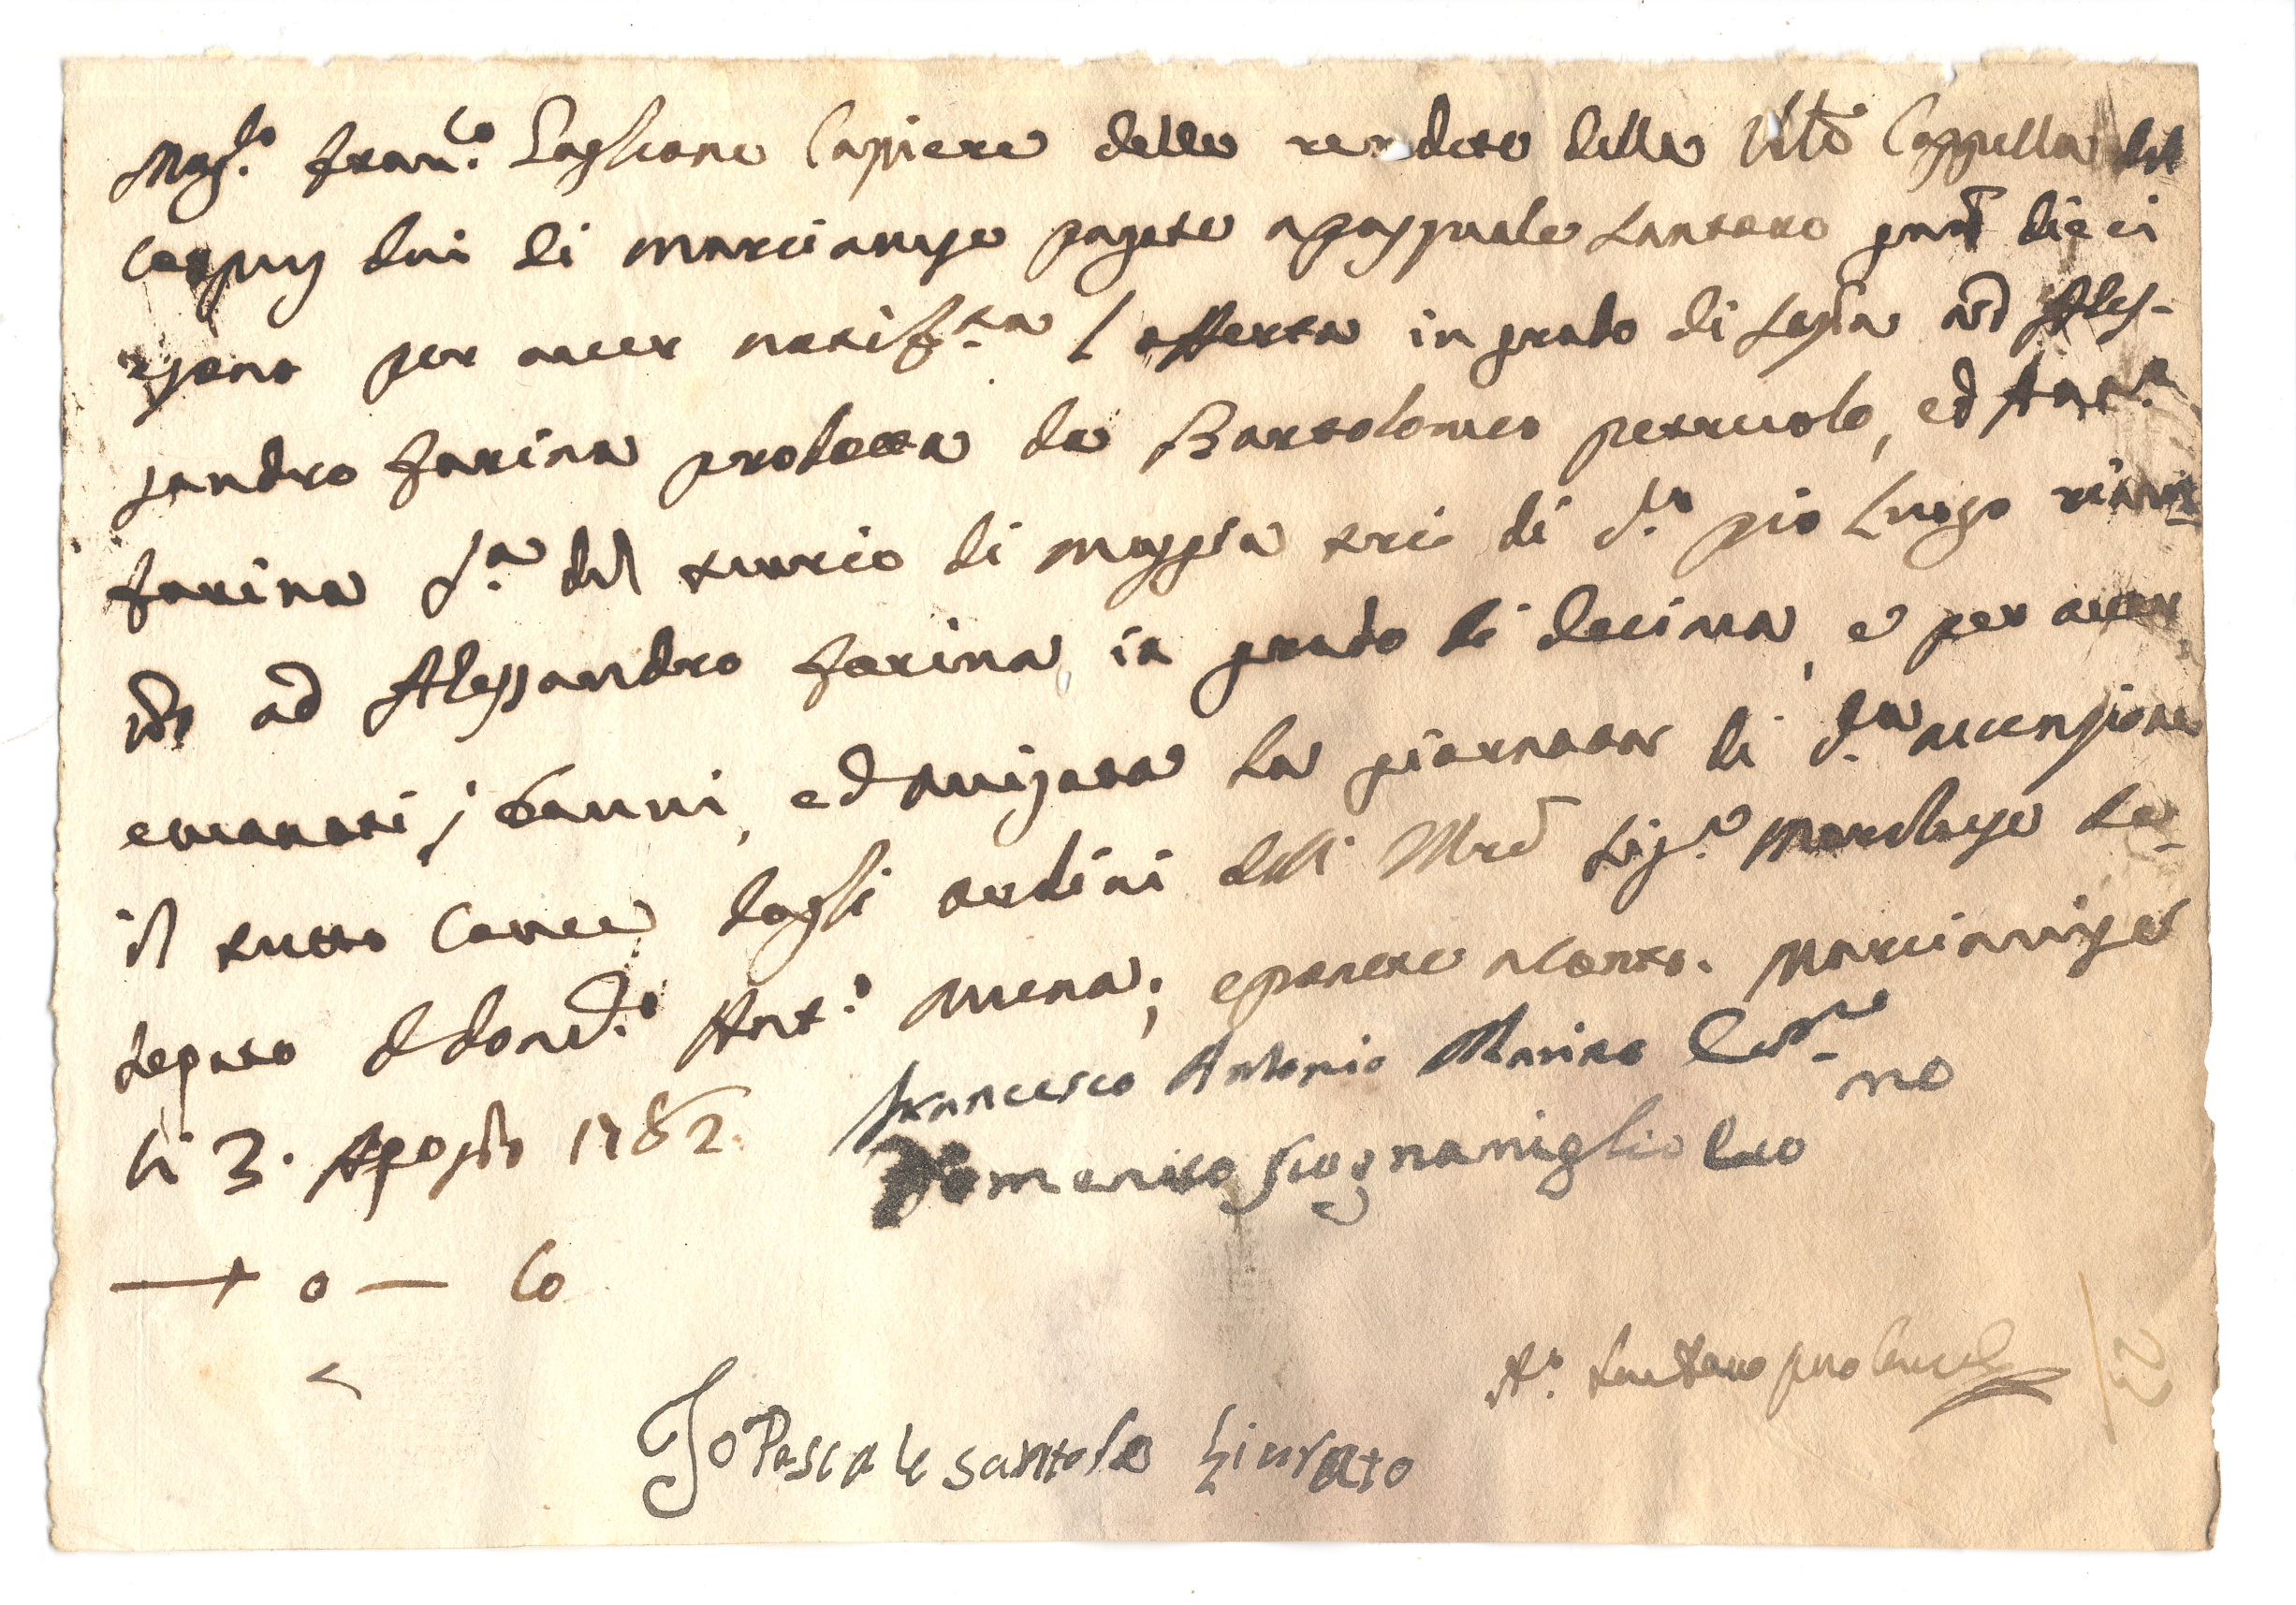 Mag.co Fran.co Taglione Casciere delle rendite della Ven.e Cappella del
Corpus Dni di Marcianise pagate a Pasquale Santoro grana dieci
e sono per aver notif.ta l'offerta in grado di sesta ad Ales-
sandro Farina prodotta da Bartolomeo Petruolo, ed Ant.o
Farina s.a del terreo di moggia tre di d.o pio Luogo
ad Alessandro Farina, in grado di decima, e per aver
emanati i banni, ed avisata la giornata di d.a accensione
il tutto con dagli ordini dell' Sig.e Marchese De-
legato D. Dom.co Ant.o Avena; e ponete a conto. Marcianise
li 3. Agosto 1782.
Francesco Antonio Marino
no
Domenico Scognamiglio
+ 0 — 10
A.o Santoro pro
Io Pascale santoro Giurato
23